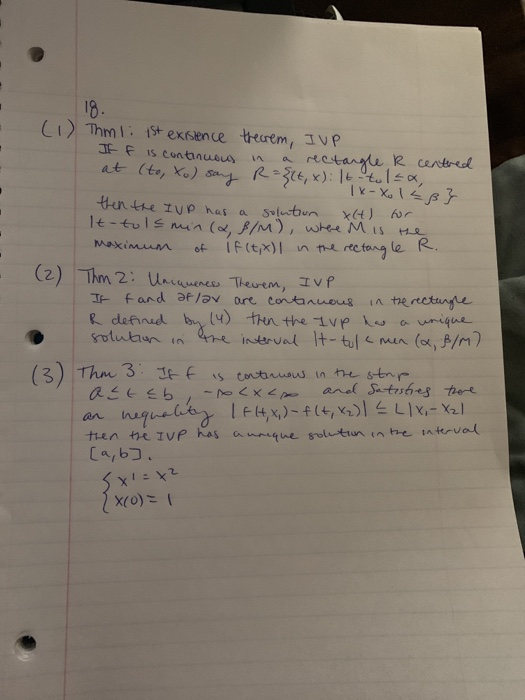 18.
(1) Thm 1: 1st existence theorem, IVP
If f is continuous in a rectangle R centred
at (t₀, x₀) say R = {(t, x): |t - t₀| ≤ α,
|x - x₀| ≤ β}
then the IVP has a solution x(t) for
|t - t₀| ≤ min (α, β/M), where M is the
maximum of |f(t,x)| in the rectangle R.
(2) Thm 2: Uniqueness Theorem, IVP
If f and ∂f/∂v are continuous in the rectangle
R defined by (4) then the IVP has a unique
solution in the interval |t - t₀| < min (α, β/M)
(3) Thm 3: If f is continuous in the strip
a ≤ t ≤ b, -∞ < x < ∞ and satisfies there
an inequality |f(t, x₁) - f(t, x₂)| ≤ L|x₁ - x₂|
then the IVP has a unique solution in the interval
[a, b].
{ x' = x²
x(0) = 1